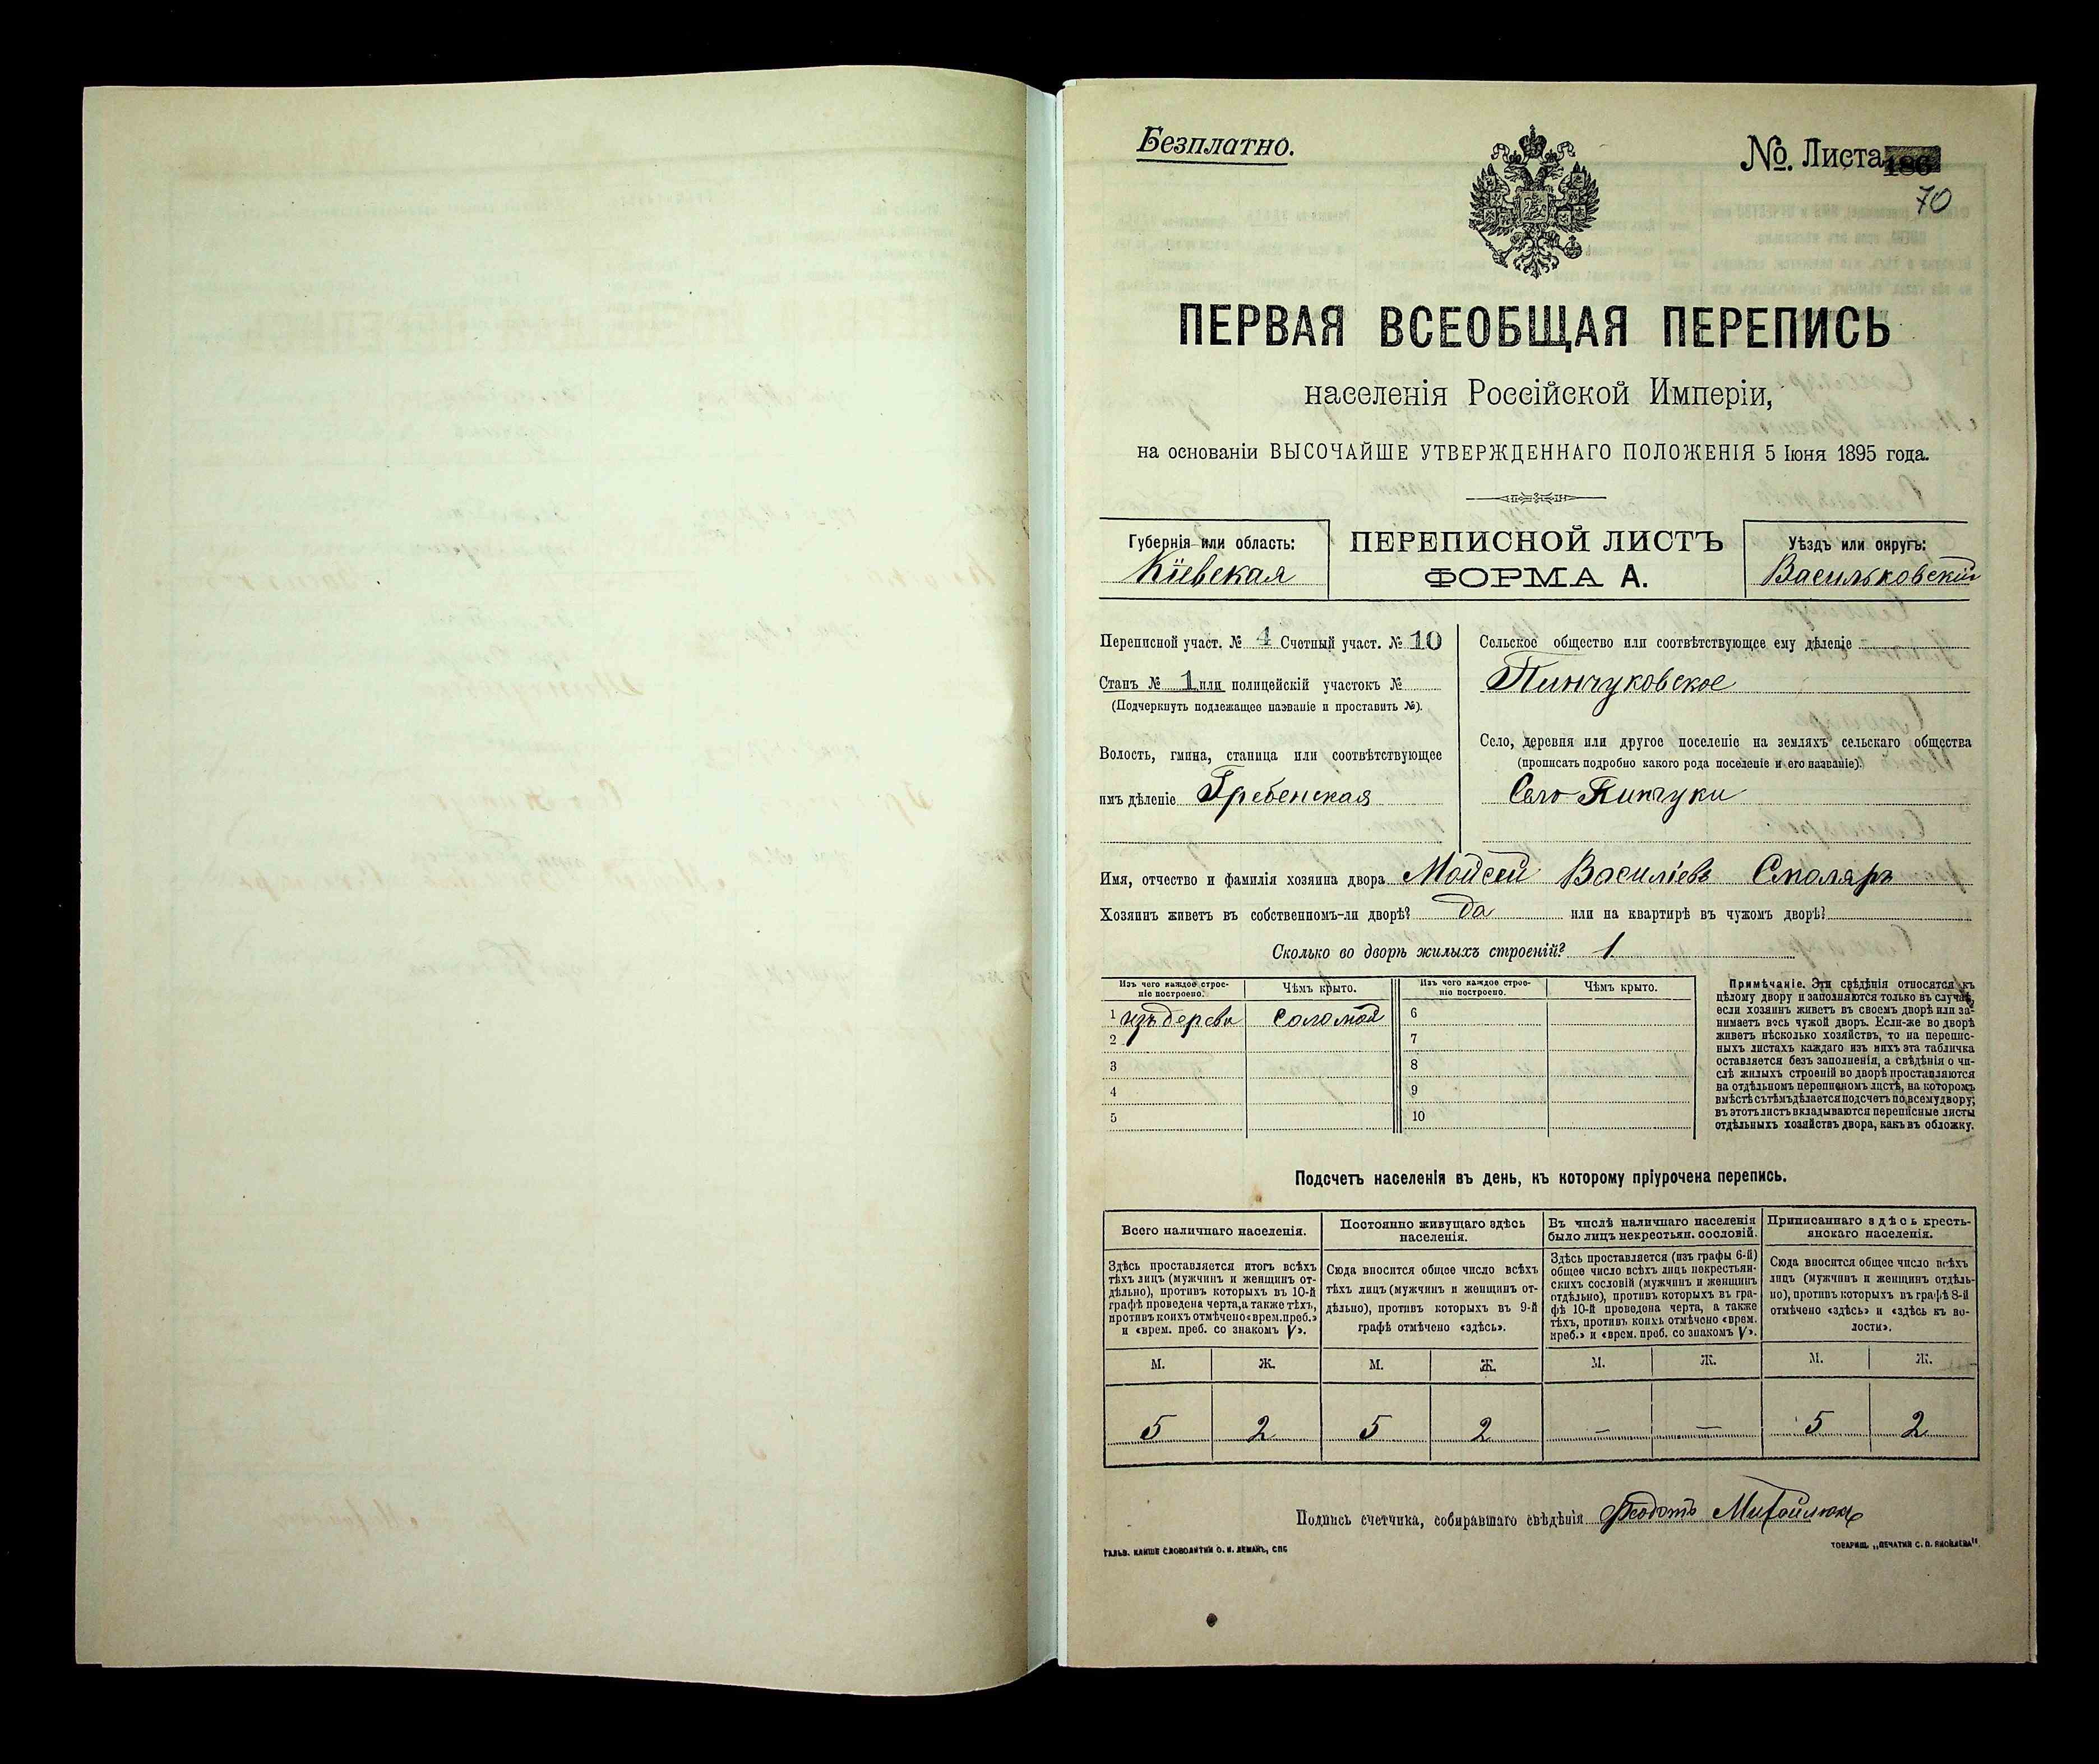 Безплатно.
№. Листа 186
70
ПЕРВАЯ ВСЕОБЩАЯ ПЕРЕПИСЬ
населенія Россійской Имперіи,
на основаніи ВЫСОЧАЙШЕ УТВЕРЖДЕННАГО ПОЛОЖЕНІЯ 5 Іюня 1895 года.
Губернія или область:
Кіевская
ПЕРЕПИСНОЙ ЛИСТЪ
ФОРМА А.
Уѣздъ или округъ:
Васильковскій
Переписной участ. № 4 Счетный участ. № 10
Станъ № 1 или полицейскій участокъ №
(Подчеркнуть подлежащее названіе и проставить №).
Волость, гмина, станица или соотвѣтствующее
имъ дѣленіе Гребенская
Сельское общество или соотвѣтствующее ему дѣленіе
Пинчуковское
Село, деревня или другое поселеніе на земляхъ сельскаго общества
(прописать подробно какого рода поселеніе и его названіе).
Село Пинчуки
Имя, отчество и фамилія хозяина двора Мойсей Василіевъ Смоляръ
Хозяинъ живетъ въ собственномъ-ли дворѣ? да или на квартирѣ въ чужомъ дворѣ?
Сколько во дворѣ жилыхъ строеній? 1
Изъ чего каждое строе-
ніе построено.
Чѣмъ крыто.
Изъ чего каждое строе-
ніе построено.
Чѣмъ крыто.
1 изъ дерева соломой 6
2 7
3 8
4 9
5 10
Примѣчаніе. Эти свѣдѣнія относятся къ
цѣлому двору и заполняются только въ случаѣ,
если хозяинъ живетъ въ своемъ дворѣ или за-
нимаетъ весь чужой дворъ. Если-же во дворѣ
живетъ нѣсколько хозяйствъ, то на перепис-
ныхъ листахъ каждаго изъ нихъ эта табличка
оставляется безъ заполненія, а свѣдѣнія о чи-
слѣ жилыхъ строеній во дворѣ проставляются
на отдѣльномъ переписномъ листѣ, на которомъ
вмѣстѣ съ тѣмъ дѣлается подсчетъ по всему двору;
въ этотъ листъ вкладываются переписные листы
отдѣльныхъ хозяйствъ двора, какъ въ обложку.
Подсчетъ населенія въ день, къ которому пріурочена перепись.
Всего наличнаго населенія.
Постоянно живущаго здѣсь
населенія.
Въ числѣ наличнаго населенія
было лицъ некрестьян. сословій.
Приписаннаго здѣсь кресть-
янскаго населенія.
Здѣсь проставляется итогъ всѣхъ
тѣхъ лицъ (мужчинъ и женщинъ от-
дѣльно), противъ которыхъ въ 10-й
графѣ проведена черта, а также тѣхъ,
противъ коихъ отмѣчено «врем. преб.»
и «врем. преб. со знакомъ V».
Сюда вносится общее число всѣхъ
тѣхъ лицъ (мужчинъ и женщинъ от-
дѣльно), противъ которыхъ въ 9-й
графѣ отмѣчено «здѣсь».
Здѣсь проставляется (изъ графы 6-й)
общее число всѣхъ лицъ некрестьян-
скихъ сословій (мужчинъ и женщинъ
отдѣльно), противъ которыхъ въ гра-
фѣ 10-й проведена черта, а также
тѣхъ, противъ коихъ отмѣчено «врем.
преб.» и «врем. преб. со знакомъ V».
Сюда вносится общее число всѣхъ
лицъ (мужчинъ и женщинъ отдѣль-
но), противъ которыхъ въ графѣ 8-й
отмѣчено «здѣсь» и «здѣсь къ во-
лости».
М. Ж. М. Ж. М. Ж. М. Ж.
5 2 5 2 — — 5 2
Подпись счетчика, собиравшаго свѣдѣнія Феодотъ Михайлюкъ
ГАЛЬВ. КЛИШЕ СЛОВОЛИТНИ О. И. ЛЕМАНЪ, СПБ
ТОВАРИЩ. „ПЕЧАТНЯ С. П. ЯКОВЛЕВА"